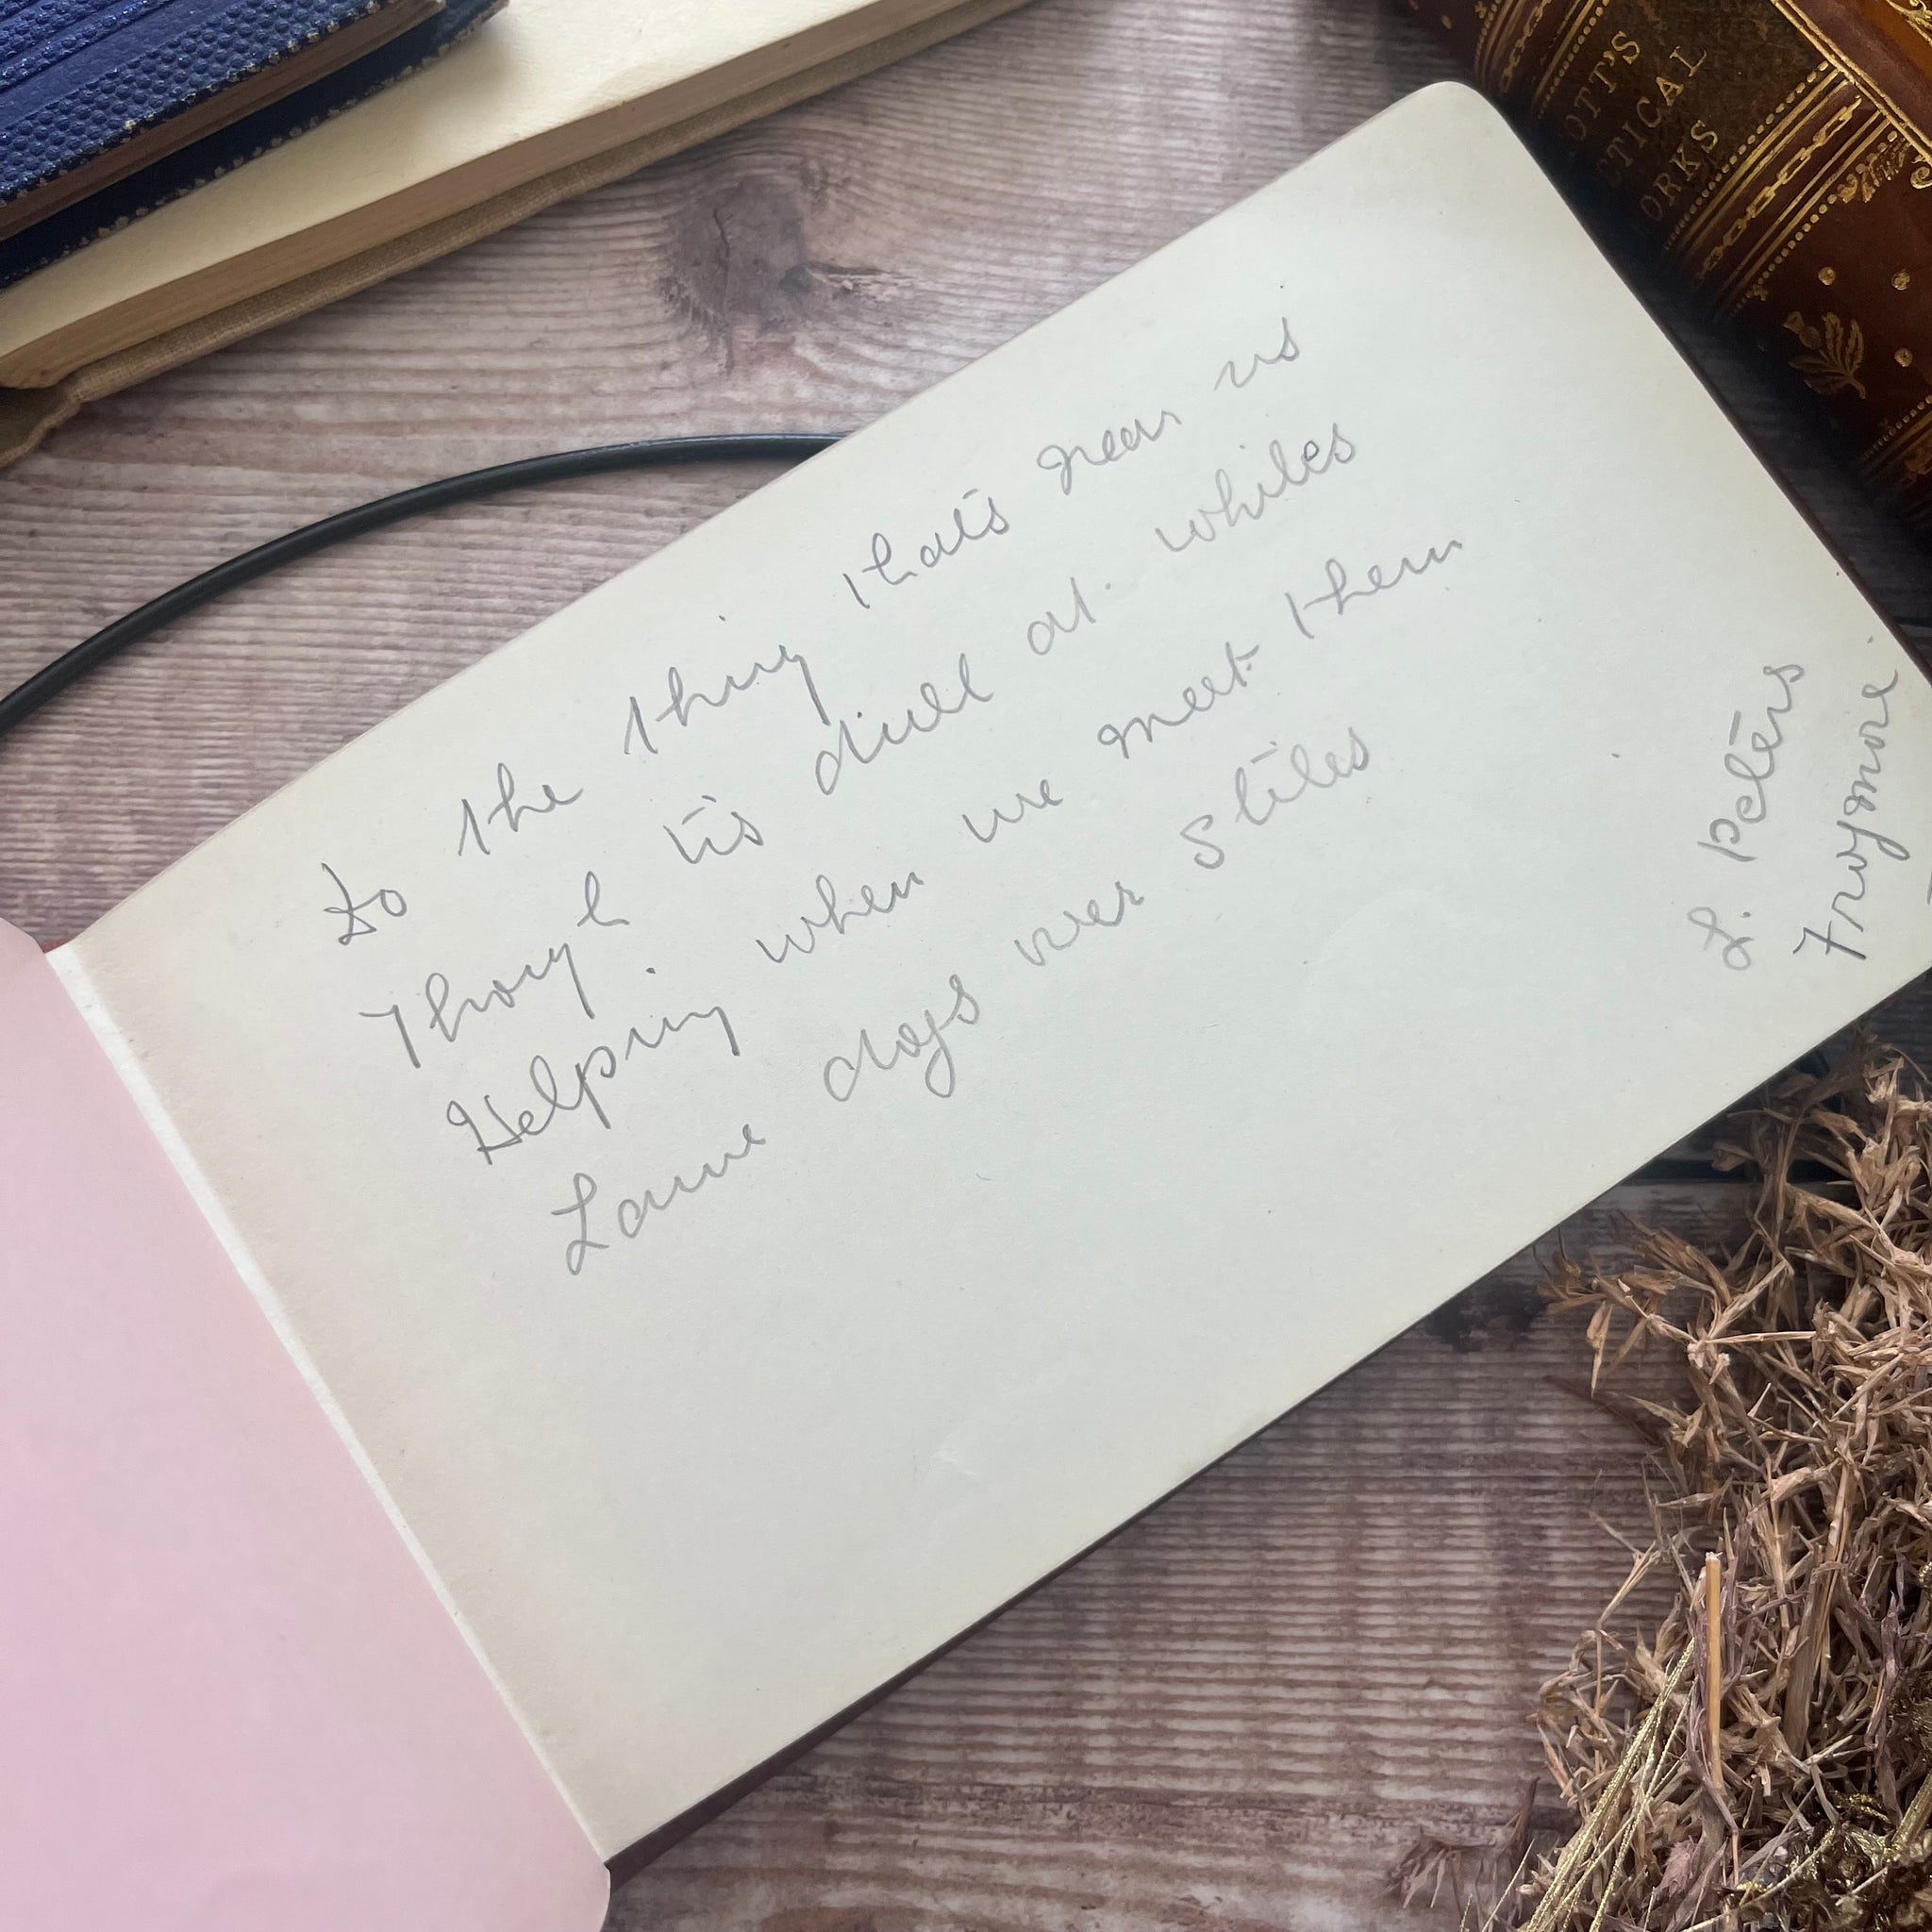 Do the thing that's near us
Though tis dull at whiles
Helping when we meet them
Lame dogs over stiles
L. Peters
Frogmore
OTT'S
TICAL
ORKS